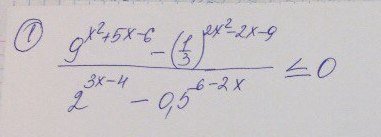 ① \frac{9^{x^2+5x-6} - \left(\frac{1}{3}\right)^{2x^2-2x-9}}{2^{3x-4} - 0,5^{6-2x}} \leq 0